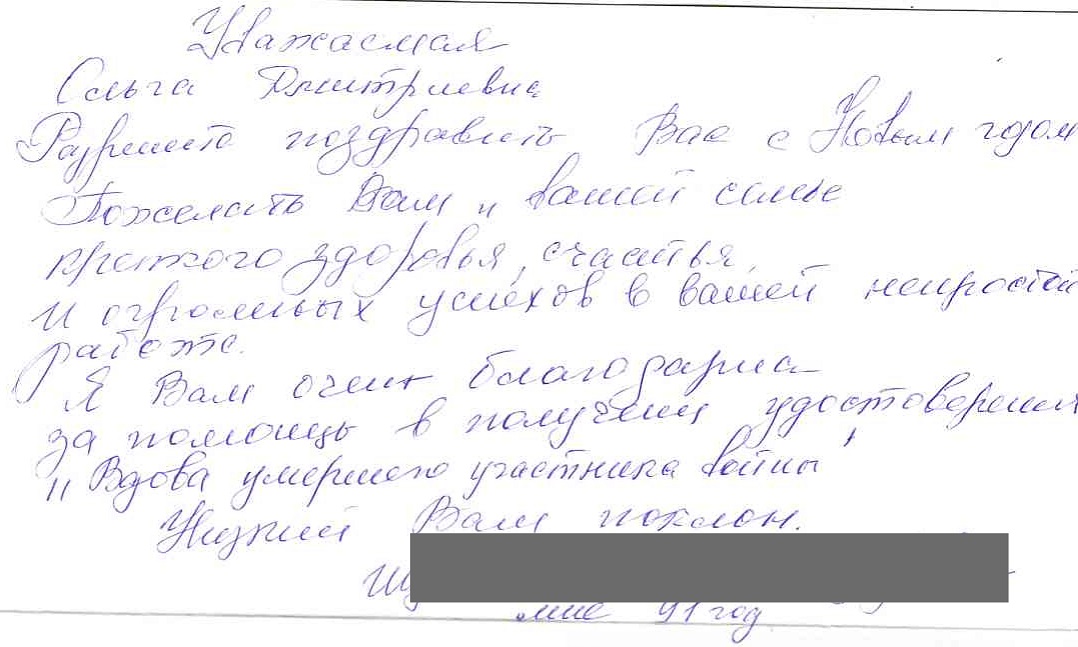 Уважаемая
Ольга Дмитриевна
Разрешите поздравить Вас с Новым годом
Пожелать Вам и вашей семье
крепкого здоровья, счастья,
и огромных успехов в вашей непростой
работе.
Я Вам очень благодарна
за помощь в получении удостоверения
"Вдова умершего участника войны"
Низкий Вам поклон.
мне 91 год